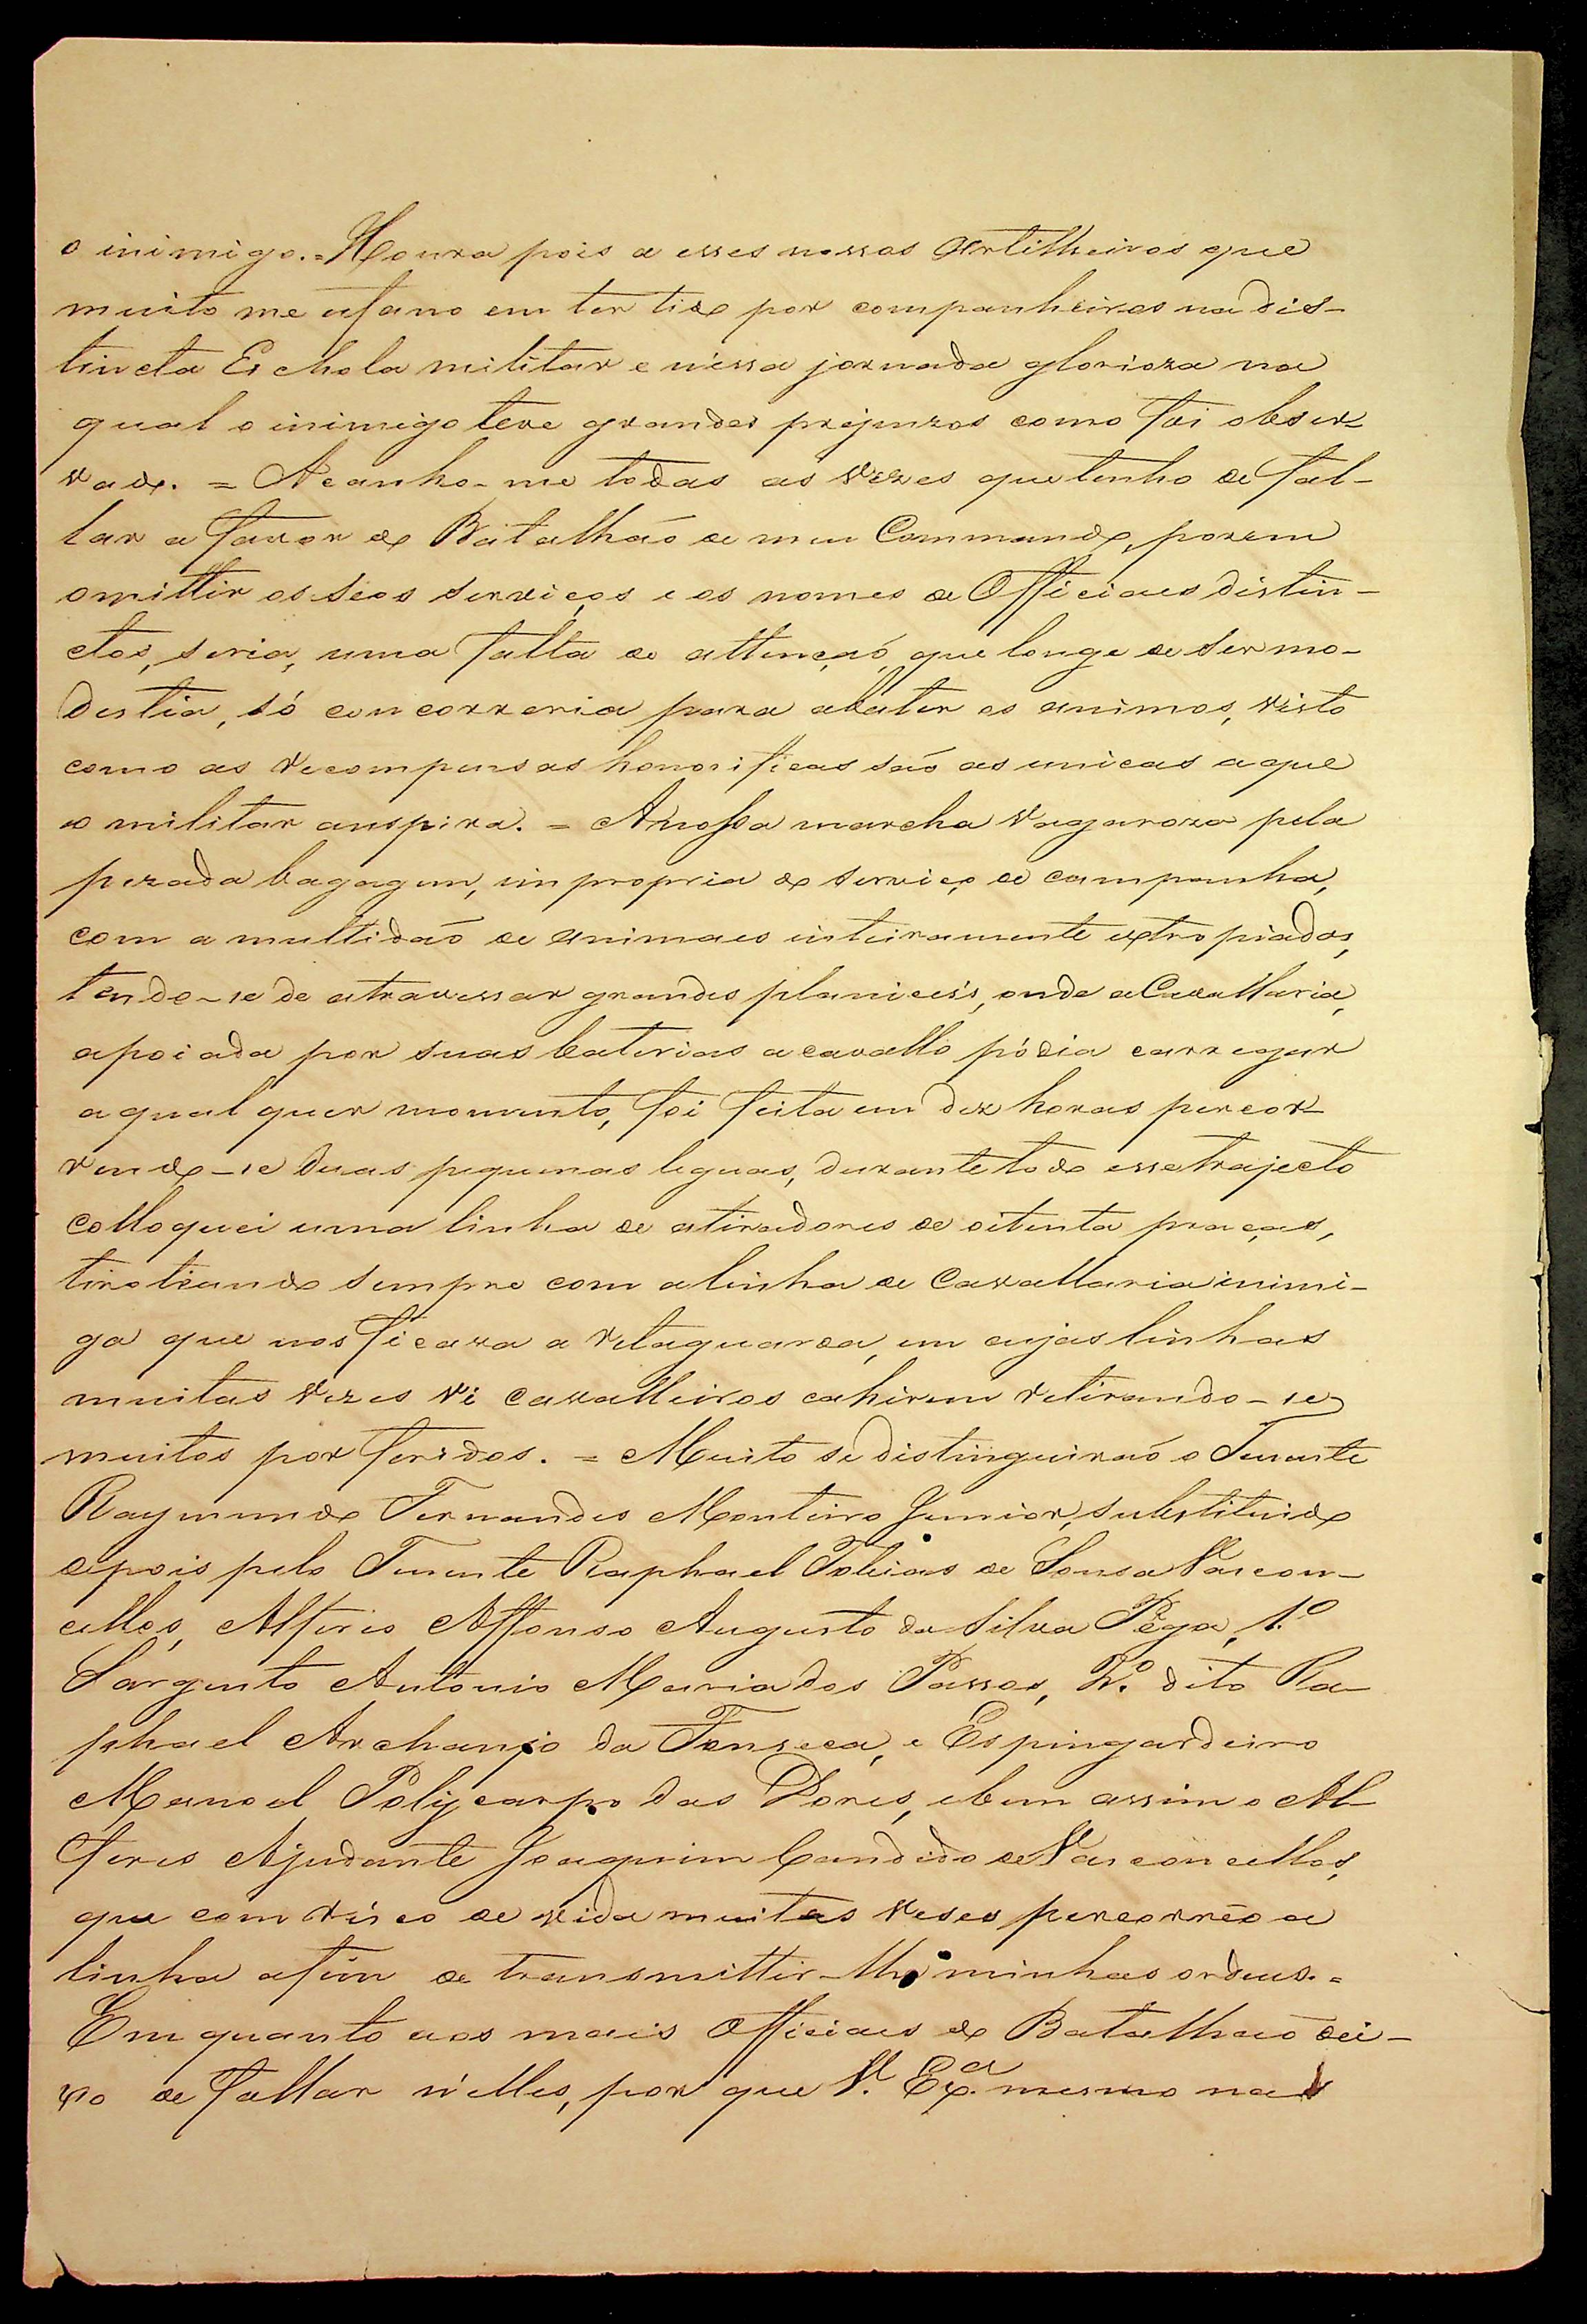 o inimigo. = Honra pois a esses nossos Artilheiros que
muito me ufano em ter tido por companheiros na dis-
tincta Eschola militar e n'essa jornada glorioza na
qual o inimigo teve grandes prejuizos como foi obser-
vado. = Acanho-me todas as vezes que tenho de fal-
lar a favor do Batalhaõ de meu Commando, porem
omittir os seos serviços e os nomes de Officiaes distin-
ctos, seria, uma falta de attençaõ, que longe de ser mo-
destia, só concorreria para abater os animos, visto
como as recompensas honorificas saõ as unicas a que
o militar auspira. = A nossa marcha vagaroza pela
pezada bagagem, impropria do serviço de campanha,
com a multidaõ de animaes inteiramente extropiados,
tendo-se de atravessar grandes planicies, onde a Cavallaria,
apoiada por suas baterias a cavallo pódia carregar
a qualquer momento, foi feita em dez horas percor-
rendo-se duas pequenas leguas, durante todo esse trajecto
colloquei uma linha de atiradores de oitenta praças,
tiroteando sempre com a linha de Cavallaria inimi-
ga que nos ficava a retaguarda, em cujas linhas
muitas vezes vi cavalleiros cahirem retirando-se
muitos por feridos. = Muito se distinguiraõ o Tenente
Raymundo Fernandes Monteiro Junior, substituido
depois pelo Tenente Raphael Tobias de Sousa Vascon-
cellos, Alferes Affonso Augusto da Silva Pêga, 1.º
Sargento Antonio Maria dos Passos, 2.º dito Ra-
phael Archanjo da Fonseca, e Espingardeiro
Manoel Polycarpo das Dores, e bem assim o Al-
feres Ajudante Joaquim Candido de Vasconcellos,
que com risco de vida muitas veses percorrêo a
linha afim de transmittir-lhe minhas ordens. =
Em quanto aos mais Officiaes do Batalhaõ dei-
xo de fallar n'elles, por que V. Ex.ª mesmo nas